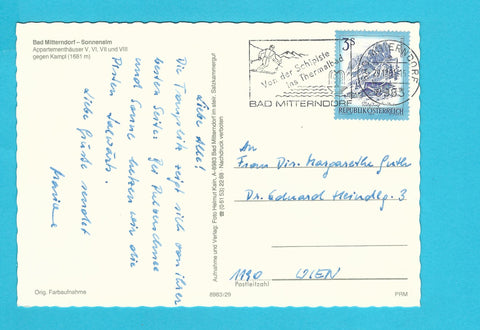 Bad Mitterndorf – Sonnenalm
Appartementhäuser V, VI, VII und VIII
gegen Kampl (1681 m)
Liebe Alle!
Die Tauplitz zeigt sich von ihrer
besten Seite. Bei Pulverschnee
und Sonne haben wir die
Pisten
Liebe Grüße sendet
Aufnahme und Verlag: Foto Helmut Kain, A-8983 Bad Mitterndorf im steir. Salzkammergut
Nachdruck verboten
Von der Schipiste
ins Thermalbad
BAD MITTERNDORF
3s
REPUBLIK ÖSTERREICH
MITTERNDORF
8983
An
Frau Dir. Margarethe
Dr. Eduard 3
1190 WIEN
Postleitzahl
Orig. Farbaufnahme
8983/29
PRM